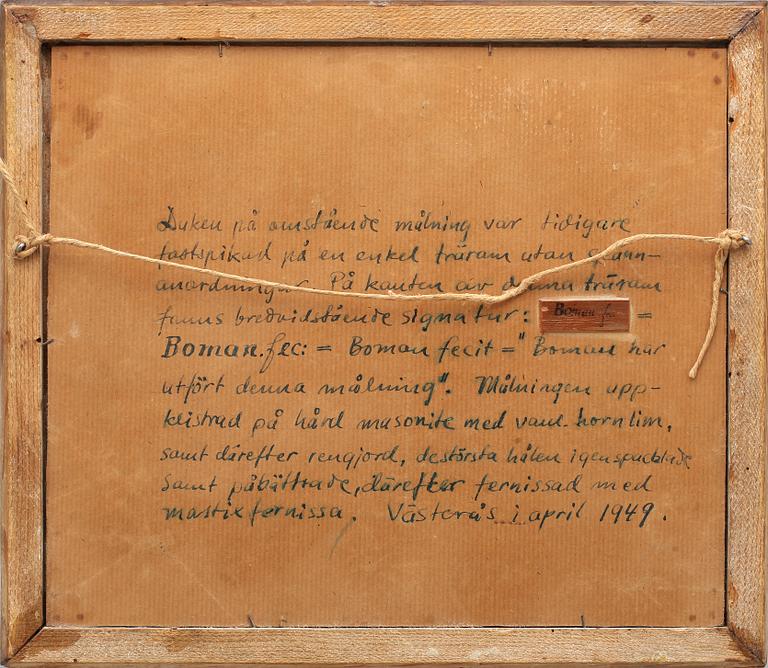 Duken på omstående målning var tidigare
fastspikad på en enkel träram utan spänn-
anordningar. På kanten av denna träram
fanns bredvidstående signatur: Boman fec. =
Boman.fec: = Boman fecit = "Boman har
utfört denna målning". Målningen upp-
klistrad på hård masonite med vanl. hornlim,
samt därefter rengjord, de största hålen igenspacklade
samt påbättrade, därefter fernissad med
mastixfernissa. Västerås i april 1949.